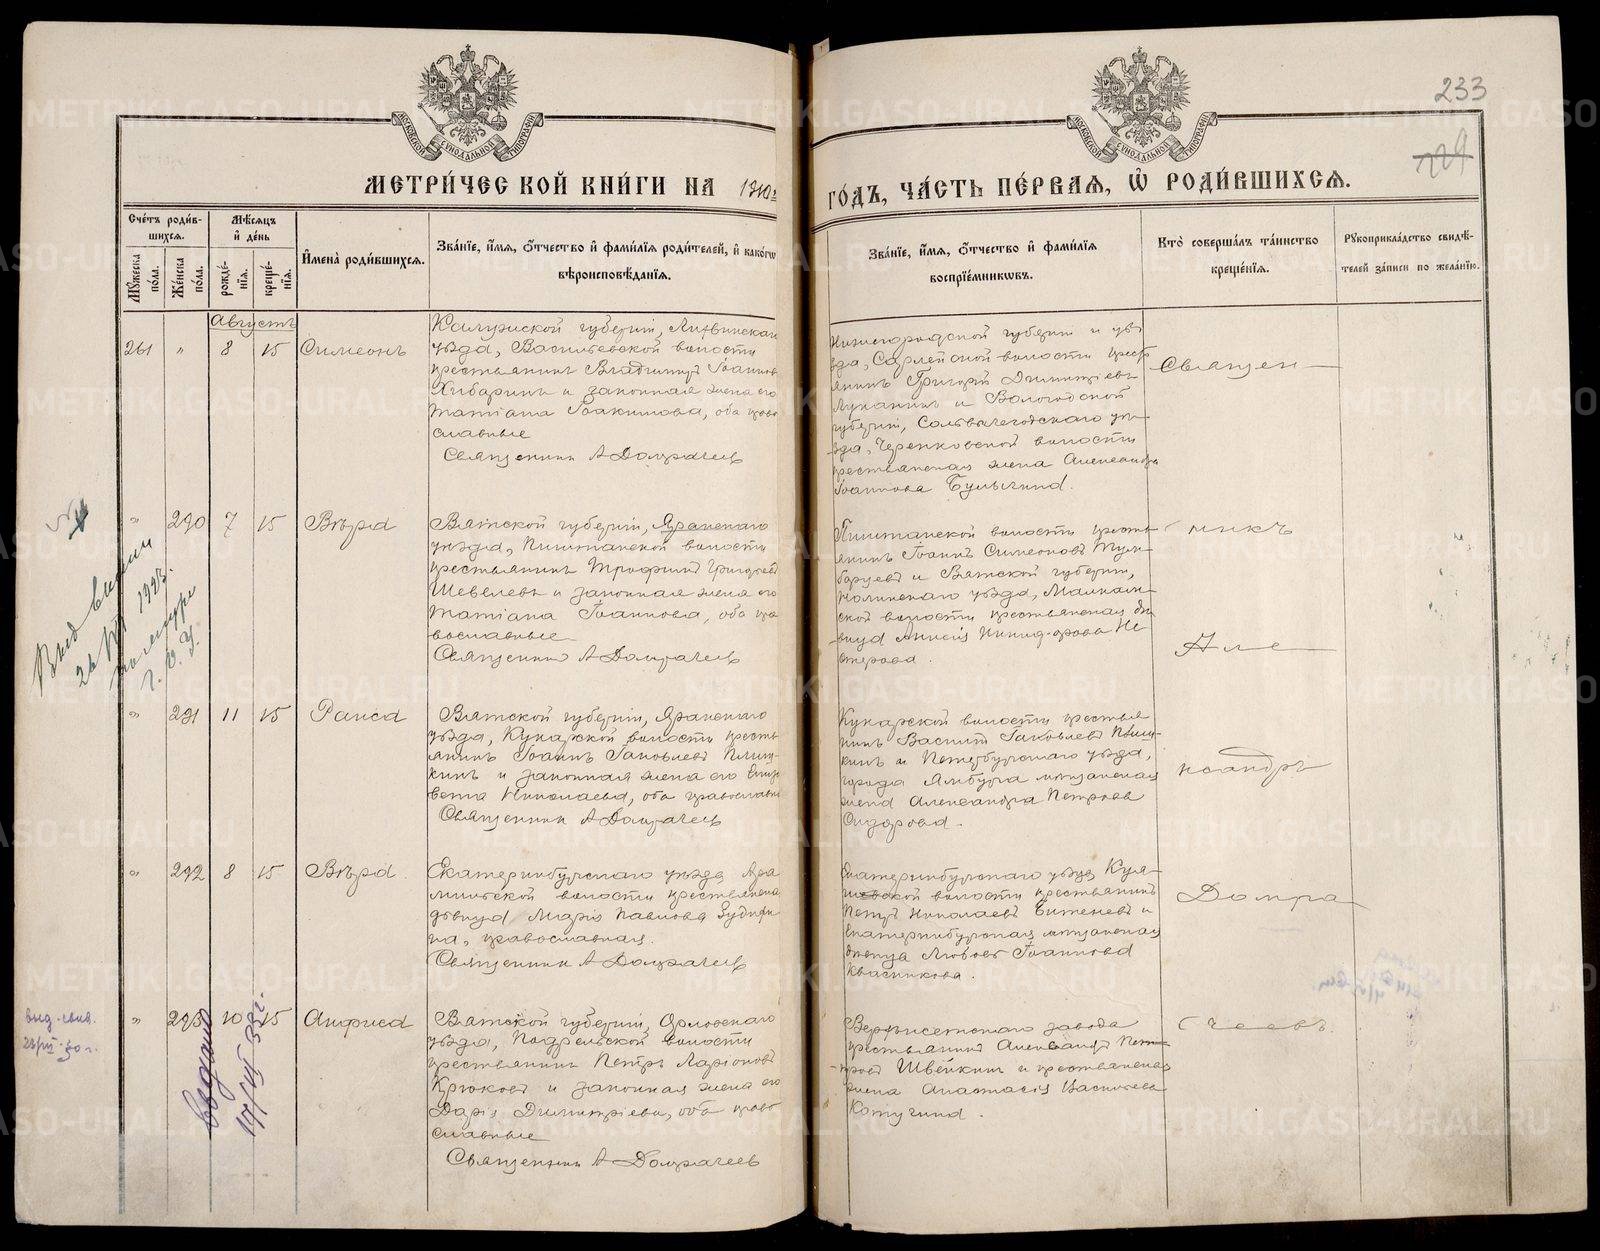 МЕТРИ́ЧЕСКОЙ КНИ́ГИ НА 1910 г
ГО́ДЪ, ЧА́СТЬ ПЕ́РВАѦ, Ѡ҆ РОДИ́ВШИХСѦ.
233
229
МОСКОВСКОЙ СѴНОДАЛЬНОЙ ТИПОГРАФІИ
МОСКОВСКОЙ СѴНОДАЛЬНОЙ ТИПОГРАФІИ
Сче́тъ роди́в-
шихсѧ.
Мꙋ́жеска по́ла.
Же́нска по́ла.
Мѣ́сѧцъ
и҆ де́нь
рожде́-
нїѧ.
креще́-
нїѧ.
И҆мена̀ роди́вшихсѧ.
Зва́нїе, и҆́мѧ, ѻ҆́тчество и҆ фами́лїѧ роди́телей, и҆ како́гѡ
вѣроисповѣ́данїѧ.
Зва́нїе, и҆́мѧ, ѻ҆́тчество и҆ фами́лїѧ
воспрїе́мникѡвъ.
Кто̀ соверша́лъ та́инство
креще́нїѧ.
Рꙋкоприкла́дство свидѣ́-
телей за́писи по жела́нїю.
Августъ
261 " 8 15 Симеонъ
Калужской губерніи, Лихвинскаго
уѣзда, Васильевской волости
крестьянинъ Владиміръ Іоанновъ
Хибаринъ и законная жена его
Татіана Іоакимова, оба право
славные
Священникъ А Домрачеевъ
Нижегородской губерніи и уѣз
да, Сарлейской волости крест
янинъ Григорій Димитріевъ
Луканинъ и Вологодской
губерніи, Сольвычегодскаго уѣ-
зда, Черевковской волости
крестьянская жена Александра
Іоаннова Булыгина.
Священ
" 290 7 15 Вѣра
Вятской губерніи, Яранскаго
уѣзда, Пиштанской волости
крестьянинъ Трофимъ Григорьевъ
Шевелевъ и законная жена его
Татіана Іоаннова, оба пра
вославные
Священникъ А Домрачеевъ
Пиштанской волости кресть-
янинъ Іоаннъ Симеоновъ
и Вятской губерніи,
Нолинскаго уѣзда,
ской волости крестьянская дѣ
вица
никъ
Але
" 291 11 15 Раиса
Вятской губерніи, Яранскаго
уѣзда, Кукарской волости кресть
янинъ Іоаннъ Іаковлевъ
кинъ и законная жена его Елиза
вета Николаева, оба православные
Священникъ А Домрачеевъ
Кукарской волости крестья
нинъ Василій Іаковлевъ
кинъ и Петербургскаго уѣзда,
города Ямбурга мѣщанская
жена Александра Петрова
Сидорова.
ксандръ
" 292 8 15 Вѣра
Екатеринбургскаго уѣзда, Ара
мильской волости крестьянская
дѣвица Марія Павлова
на, православная.
Священникъ А Домрачеевъ
Екатеринбургскаго уѣзда
волости крестьянинъ
Петръ Николаевъ и
Екатеринбургская мѣщанская
дѣвица Любовь Іоаннова
Квасникова.
Домра
" 293 10 15 Анфиса
Вятской губерніи, Орловскаго
уѣзда, Подрельской волости
крестьянинъ Петръ Ларіоновъ
Крюковъ и законная жена его
Дарія Димитріева, оба право
славные
Священникъ А Домрачеевъ
Верхъисетскаго завода
крестьянинъ Александръ Пет-
ровъ Швейкинъ и крестьянская
жена Анастасія Васильева
Котугина.
чеевъ.
Выд
1923.
выд. свид.
23/VII 30 г.
выдано
17/VII 33 г.
METRIKI.GASO-URAL.RU